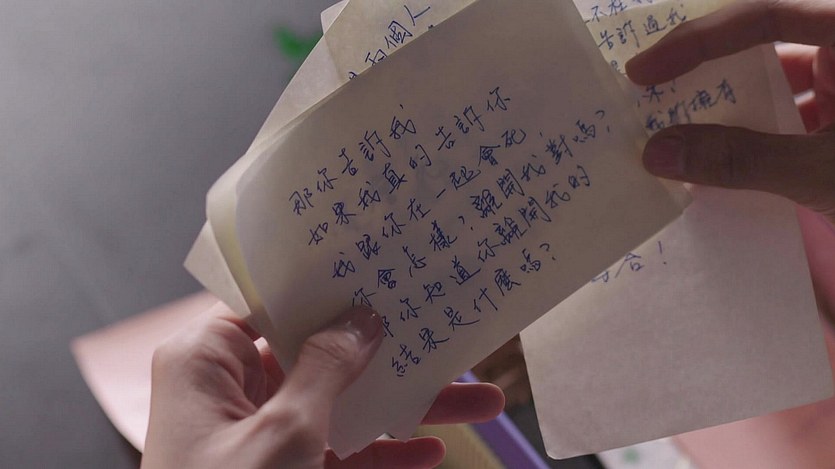 那你告訴我
如果我真的告訴你
我跟你在一起會死,
你會怎樣?離開我對嗎?
那你知道你離開我的
結果是什麼嗎?
個人
不在
告訴過我
我們擁有
合!